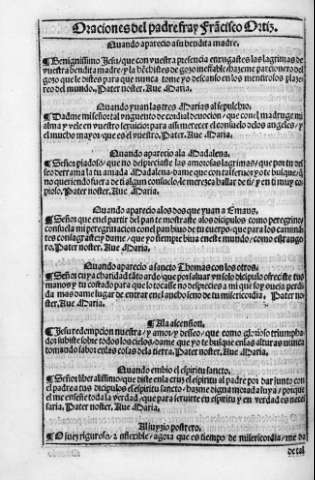 Oraciones del padre fray Frãcisco Ortiz.
Quando aparecio a su bendita madre.
¶Benignissimo Jesu, que con vuestra presencia enxugastes las lagrimas de
vuestra bendita madre y la hẽchistes de gozo ineffable, hazeme parcionero del
gozo que le distes para que nunca tome yo descanso en los mentirosos plaze
res del mundo. Pater noster. Aue Maria.
Quando yuan las tres Marias al sepulchro.
¶Dadme mi señor al vnguento de cordial deuocion, que con el madrugue mi
alma y vele en vuestro seruicio para assi merecer el consuelo de los angeles, y
el mucho mayor que es el vuestro. Pater noster. Aue Maria.
Quando aparecio ala Madalena.
¶Señor piadoso, que no despreciaste las amorosas lagrimas, que por tu des
seo derrama la tu amada Madalena, dame que con tal feruor yo te busque, q̃
no queriendo fuera de ti algun consuelo, te merezca hallar de ti, y en ti muy co
pioso. Pater noster. Aue Maria.
Quando aparecio alos dos que yuan a Emaus.
¶Señor que en el partir del pan te mostraste alos dicipulos como peregrino,
consuela mi peregrinacion con el pan biuo de tu cuerpo, que para los caminan
tes consagraste, y dame, que yo siempre biua en este mundo, como estrange
ro. Pater noster. Aue Maria.
Quando aparecio a sancto Thomas con los otros.
¶Señor cuya charidad tãto ardio que por saluar vn solo dicipulo ofreciste tus
manos y tu costado para que lo tocasse no desprecies a mi que soy oueja perdi
da mas dame lugar de entrar en el ancho seno de tu misericordia. Pater no-
ster. Aue Maria.
¶A la ascension.
¶Jesu redempcion nuestra, y amor, y desseo, que como glorioso triumpha-
dor subiste sobre todos los cielos, dame que yo te busque enlas alturas nunca
tomando sabor enlas cosas dela tierra. Pater noster. Aue Maria.
Quando embio el espiritu sancto.
¶Señor liberalissimo, que diste enla cruz el spiritu al padre por dar junto con
el padre a tus dicipulos el espiritu sancto, hasme digna morada suya, porque
el me enseñe toda la verdad, que para seruirte en espiritu y en verdad es neces
saria. Pater noster. Aue Maria.
Al juyzio postrero.
¶O juez riguroso, a inflexible, agora que es tiempo de misericordia, me da
de tal